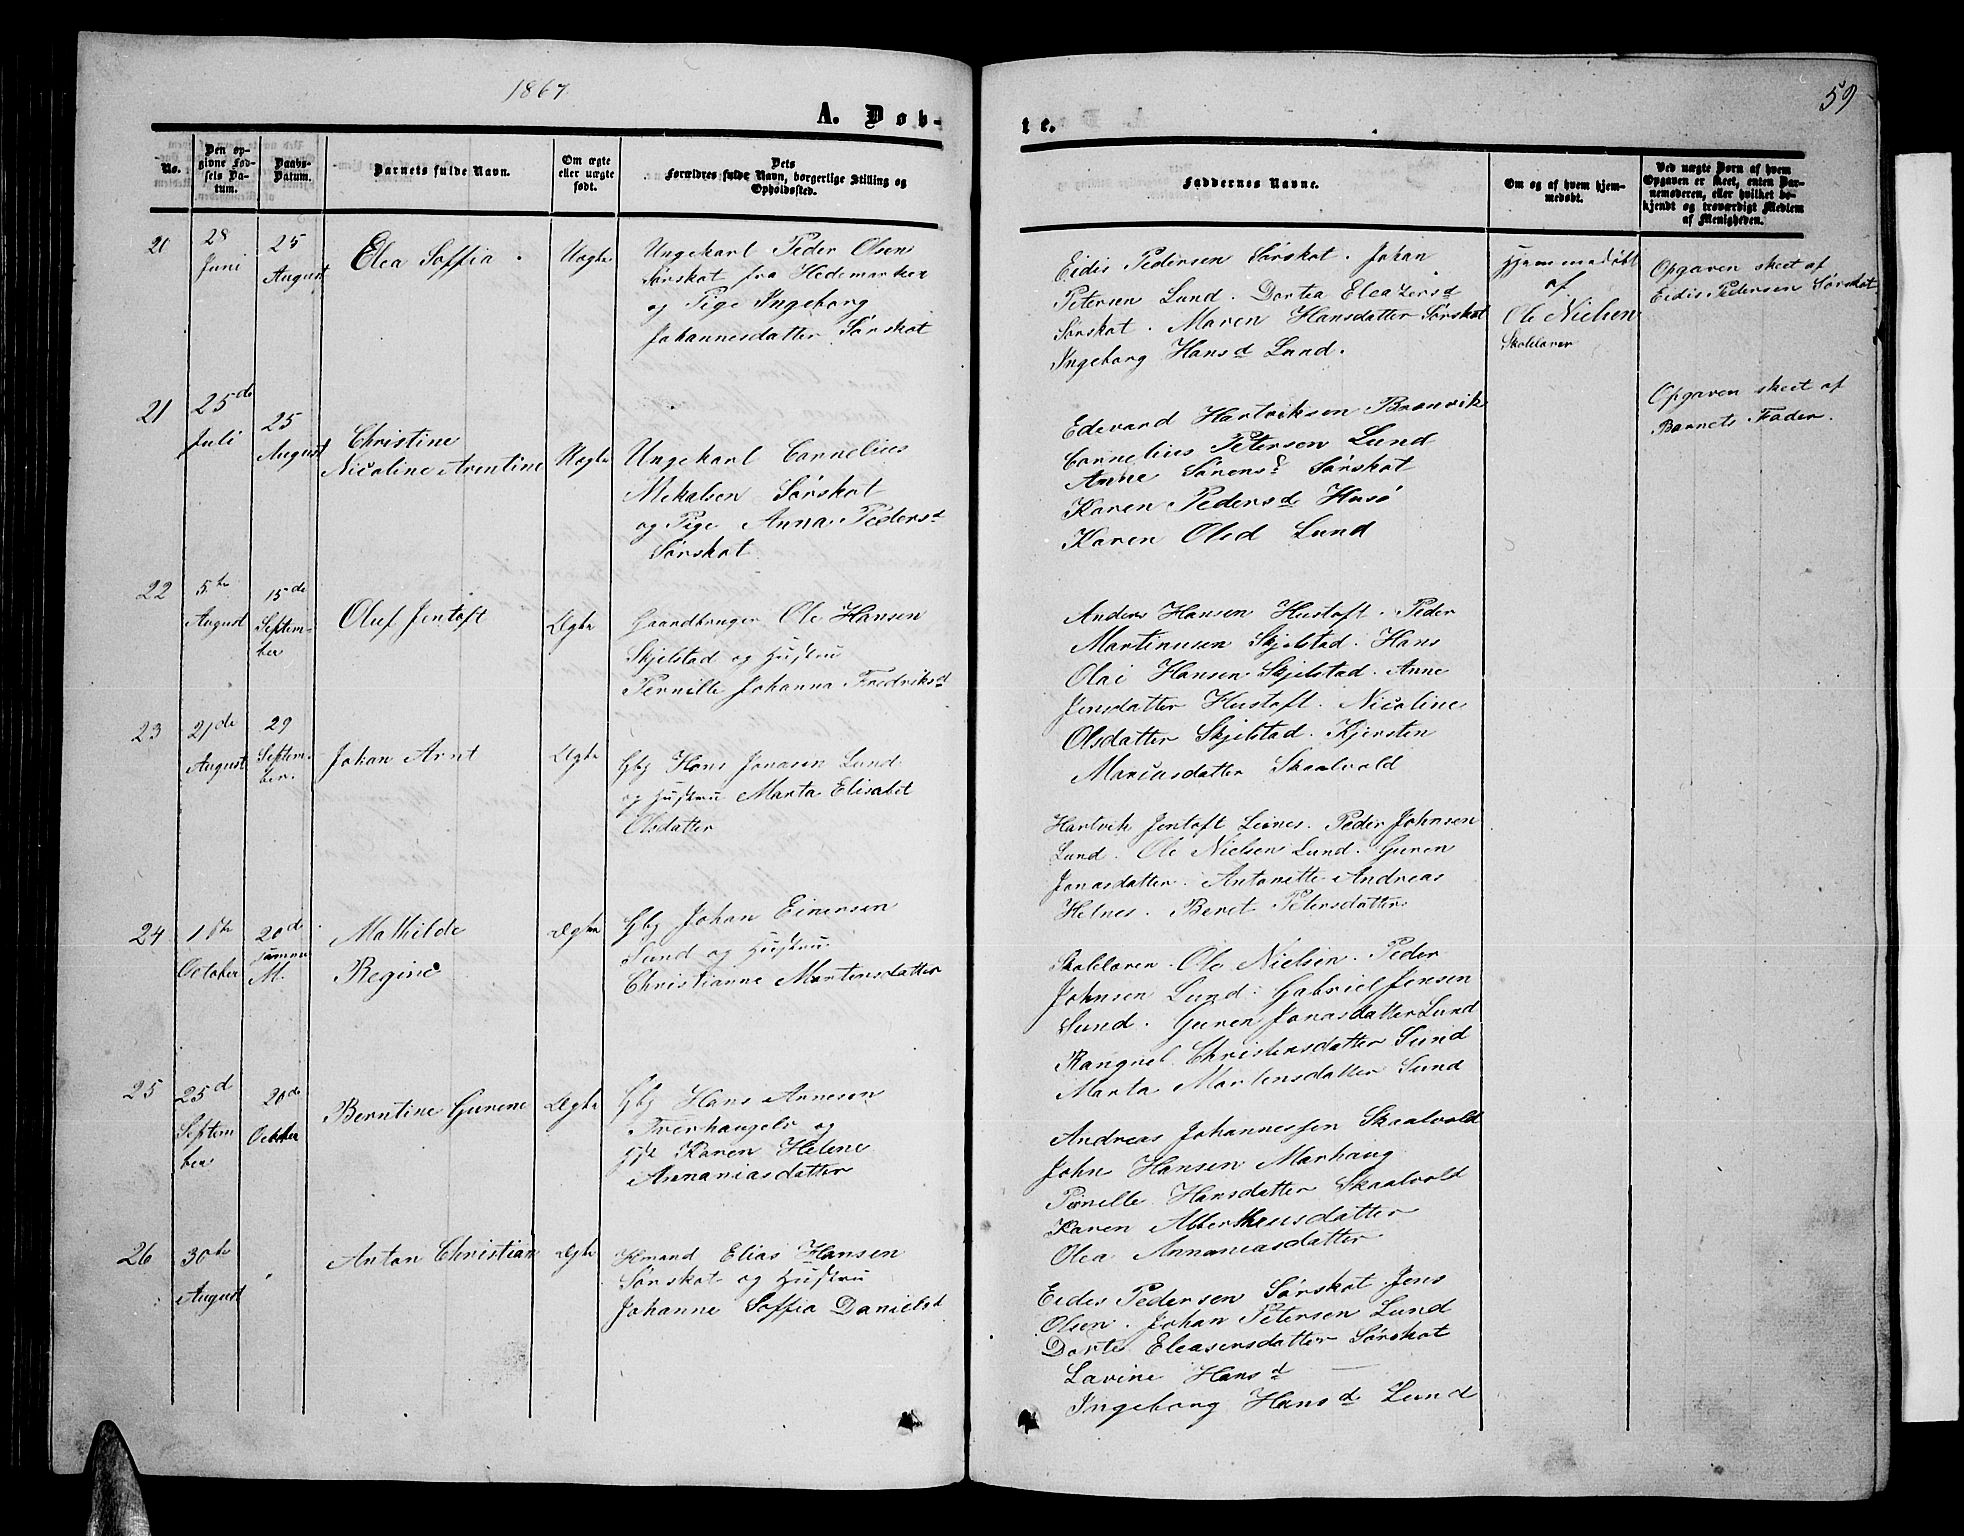 1867
59
A. Døb-
te.
No.
Den op-
givne Fød-
sels Da-
tum.
Daabs-
Datum.
Barnets fulde Navn.
Om ægte
eller uægte
født.
Dets
Forældres fulde Navn, borgerlige Stilling og
Opholdssted.
Faddernes Navne.
Om og af hvem hjem-
medøbt.
Ved uægte Børn af hvem
Opgaven er skeet, enten Bar-
nemoderen, eller hvilket be-
kjendt og troværdigt Medlem
af Menigheden.
20
28
Juni
25
August
Elea Soffia
Uægte
Ungekarl Peder Olsen
Sørskot fra Hedemarken
og Pige Ingeborg
Johannesdatter Sørskot
Eidis Pedersen Sørskot. Johan
Petersen Lund. Dortea Eleazersd
Sørskot. Maren Hansdatter Sørskot
Ingeborg Hansd Lund.
Hjemmedøbt
af
Ole Nielsen
Skolelærer
Opgaven skeet af
Eidis Pedersen Sørskot
21
25de
Juli
25
August
Christine
Nicoline Arentine
Uægte
Ungekarl Cornelius
Mikalsen Sørskot
og Pige Anna Pedersd
Sørskot.
Edevard Hartviksen Brønvik
Cornelius Petersen Lund
Anne Sørensd Sørskot
Karen Pedersd Husø
Karen Olsd Lund
Opgaven skeet af
Barnets Fader.
22
5te
August
15de
Septem-
ber
Oluf Jentoft
Ægte
Gaardbruger Ole Hansen
Skjelstad og Hustru
Pernille Johanna Fredriksd
Anders Hansen Hustoft. Peder
Martinusen Skjelstad. Hans
Olai Hansen Skjelstad. Anne
Jensdatter Hustoft. Nicoline
Olsdatter Skjelstad. Kjersten
Mariusdatter Skaalvold
23
21de
August
29
Septem-
ber.
Johan Arnt
Ægte
Gbg Hans Jonasen Lund
og Hustru Marta Elisabet
Olsdatter
Hartvik Jentoft Leines. Peder Johnsen
Lund. Ole Nielsen Lund. Guren
Jonasdatter. Antonette Andreas
Helnes. Beret Petersdatter
24
1ste
October
20de
samme
M.
Mathilde
Regine
Ægte
Gbg Johan Einersen
Sund og Hustru
Christianne Mortensdatter
Skolelæren. Ole Nielsen. Peder
Johnsen Lund. Gabriel Jensen
Sund. Guren Jonasdatter Lund
Rangnel Christensdatter Sund
Marta Mortensdatter Sund
25
25d
Septem
ber
20de
October
Berntine Gurene
Ægte
Gbg Hans Arnesen
og
Karen Helene
Annaniasdatter
Andreas Johannessen Skaalvold
John Hansen Marhaug
Pernille Hansdatter Skaalvold
Karen Albertheusdatter
Olea Annaniasdatter
26
30te
August
Anton Christian
Ægte
Hmand Elias Hansen
Sørskot og Hustru
Johanne Soffia Danielsd
Eides Pedersen Sørskot. Jens
Olsen. Johan Petersen Lund
Dorte Eleasersdatter Sørskot
Lavine Hansd —
Ingeborg Hansd Lund